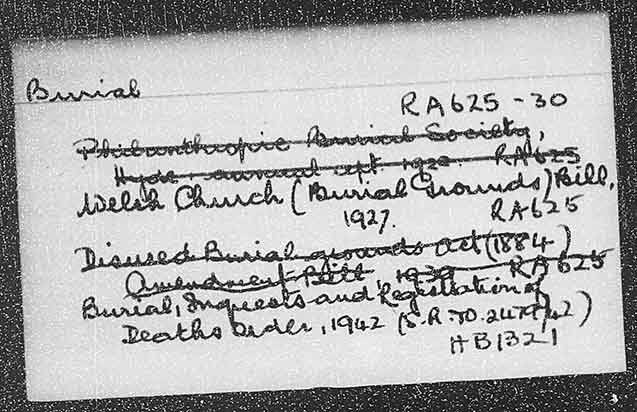 Burial
RA625-30
Philanthropic Burial Society,
Hyde, annual rept. 1922. RA625
Welsh Church (Burial Grounds) Bill,
1927. RA625
Disused Burial grounds Act (1884)
Amendment Bill RA625
Burial, Inquests and Registration of
Deaths Order, 1942 (S.R.&O.
HB1321